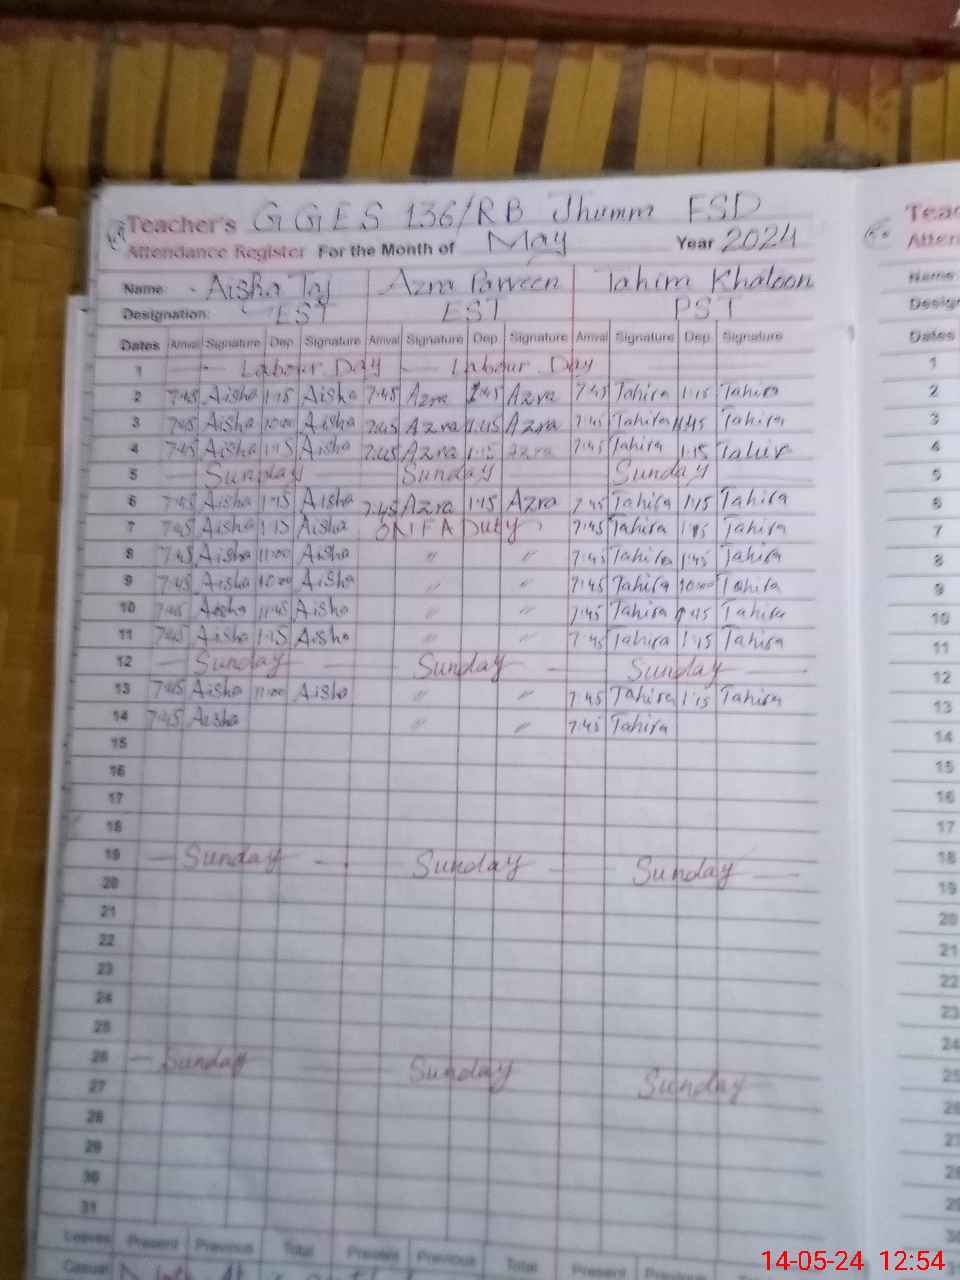 Teacher's GGES 136/RB Jhumra FSD
Attendance Register For the Month of May Year 2024
Name Aisha Taj Azra Parveen Tahira Khatoon
Designation: EST EST PST
Dates Arrival Signature Dep. Signature Arrival Signature Dep. Signature Arrival Signature Dep. Signature
1 Labour Day Labour Day
2 7:45 Aisha 1:15 Aisha 7:45 Azra 1:45 Azra 7:45 Tahira 1:15 Tahira
3 7:45 Aisha 10:00 Aisha 7:45 Azra 11:45 Azra 7:45 Tahira 11:45 Tahira
4 7:45 Aisha 1:15 Aisha 7:45 Azra 1:15 Azra 7:45 Tahira 1:15 Tahira
5 Sunday Sunday Sunday
6 7:45 Aisha 1:15 Aisha 7:45 Azra 1:15 Azra 7:45 Tahira 1:15 Tahira
7 7:45 Aisha 1:15 Aisha Duty 7:45 Tahira Tahira
8 7:45 Aisha 11:00 Aisha " " 7:45 Tahira 1:45 Tahira
9 7:45 Aisha 10:00 Aisha " " 7:45 Tahira 10:00 Tahira
10 7:45 Aisha 11:45 Aisha " " 7:45 Tahira Tahira
11 7:45 Aisha 1:15 Aisha " " 7:45 Tahira 1:15 Tahira
12 Sunday Sunday Sunday
13 7:45 Aisha 11:00 Aisha " " 7:45 Tahira 1:15 Tahira
14 7:45 Aisha " " 7:45 Tahira
15
16
17
18
19 Sunday Sunday Sunday
20
21
22
23
24
25
26 Sunday Sunday Sunday
27
28
29
30
31
Leaves Present Previous Total Present Previous Total Present Previous
Casual
Name
Dates
1
2
3
4
5
6
7
8
9
10
11
12
13
14
15
16
17
18
19
20
21
22
23
24
25
26
27
28
29
30
14-05-24 12:54